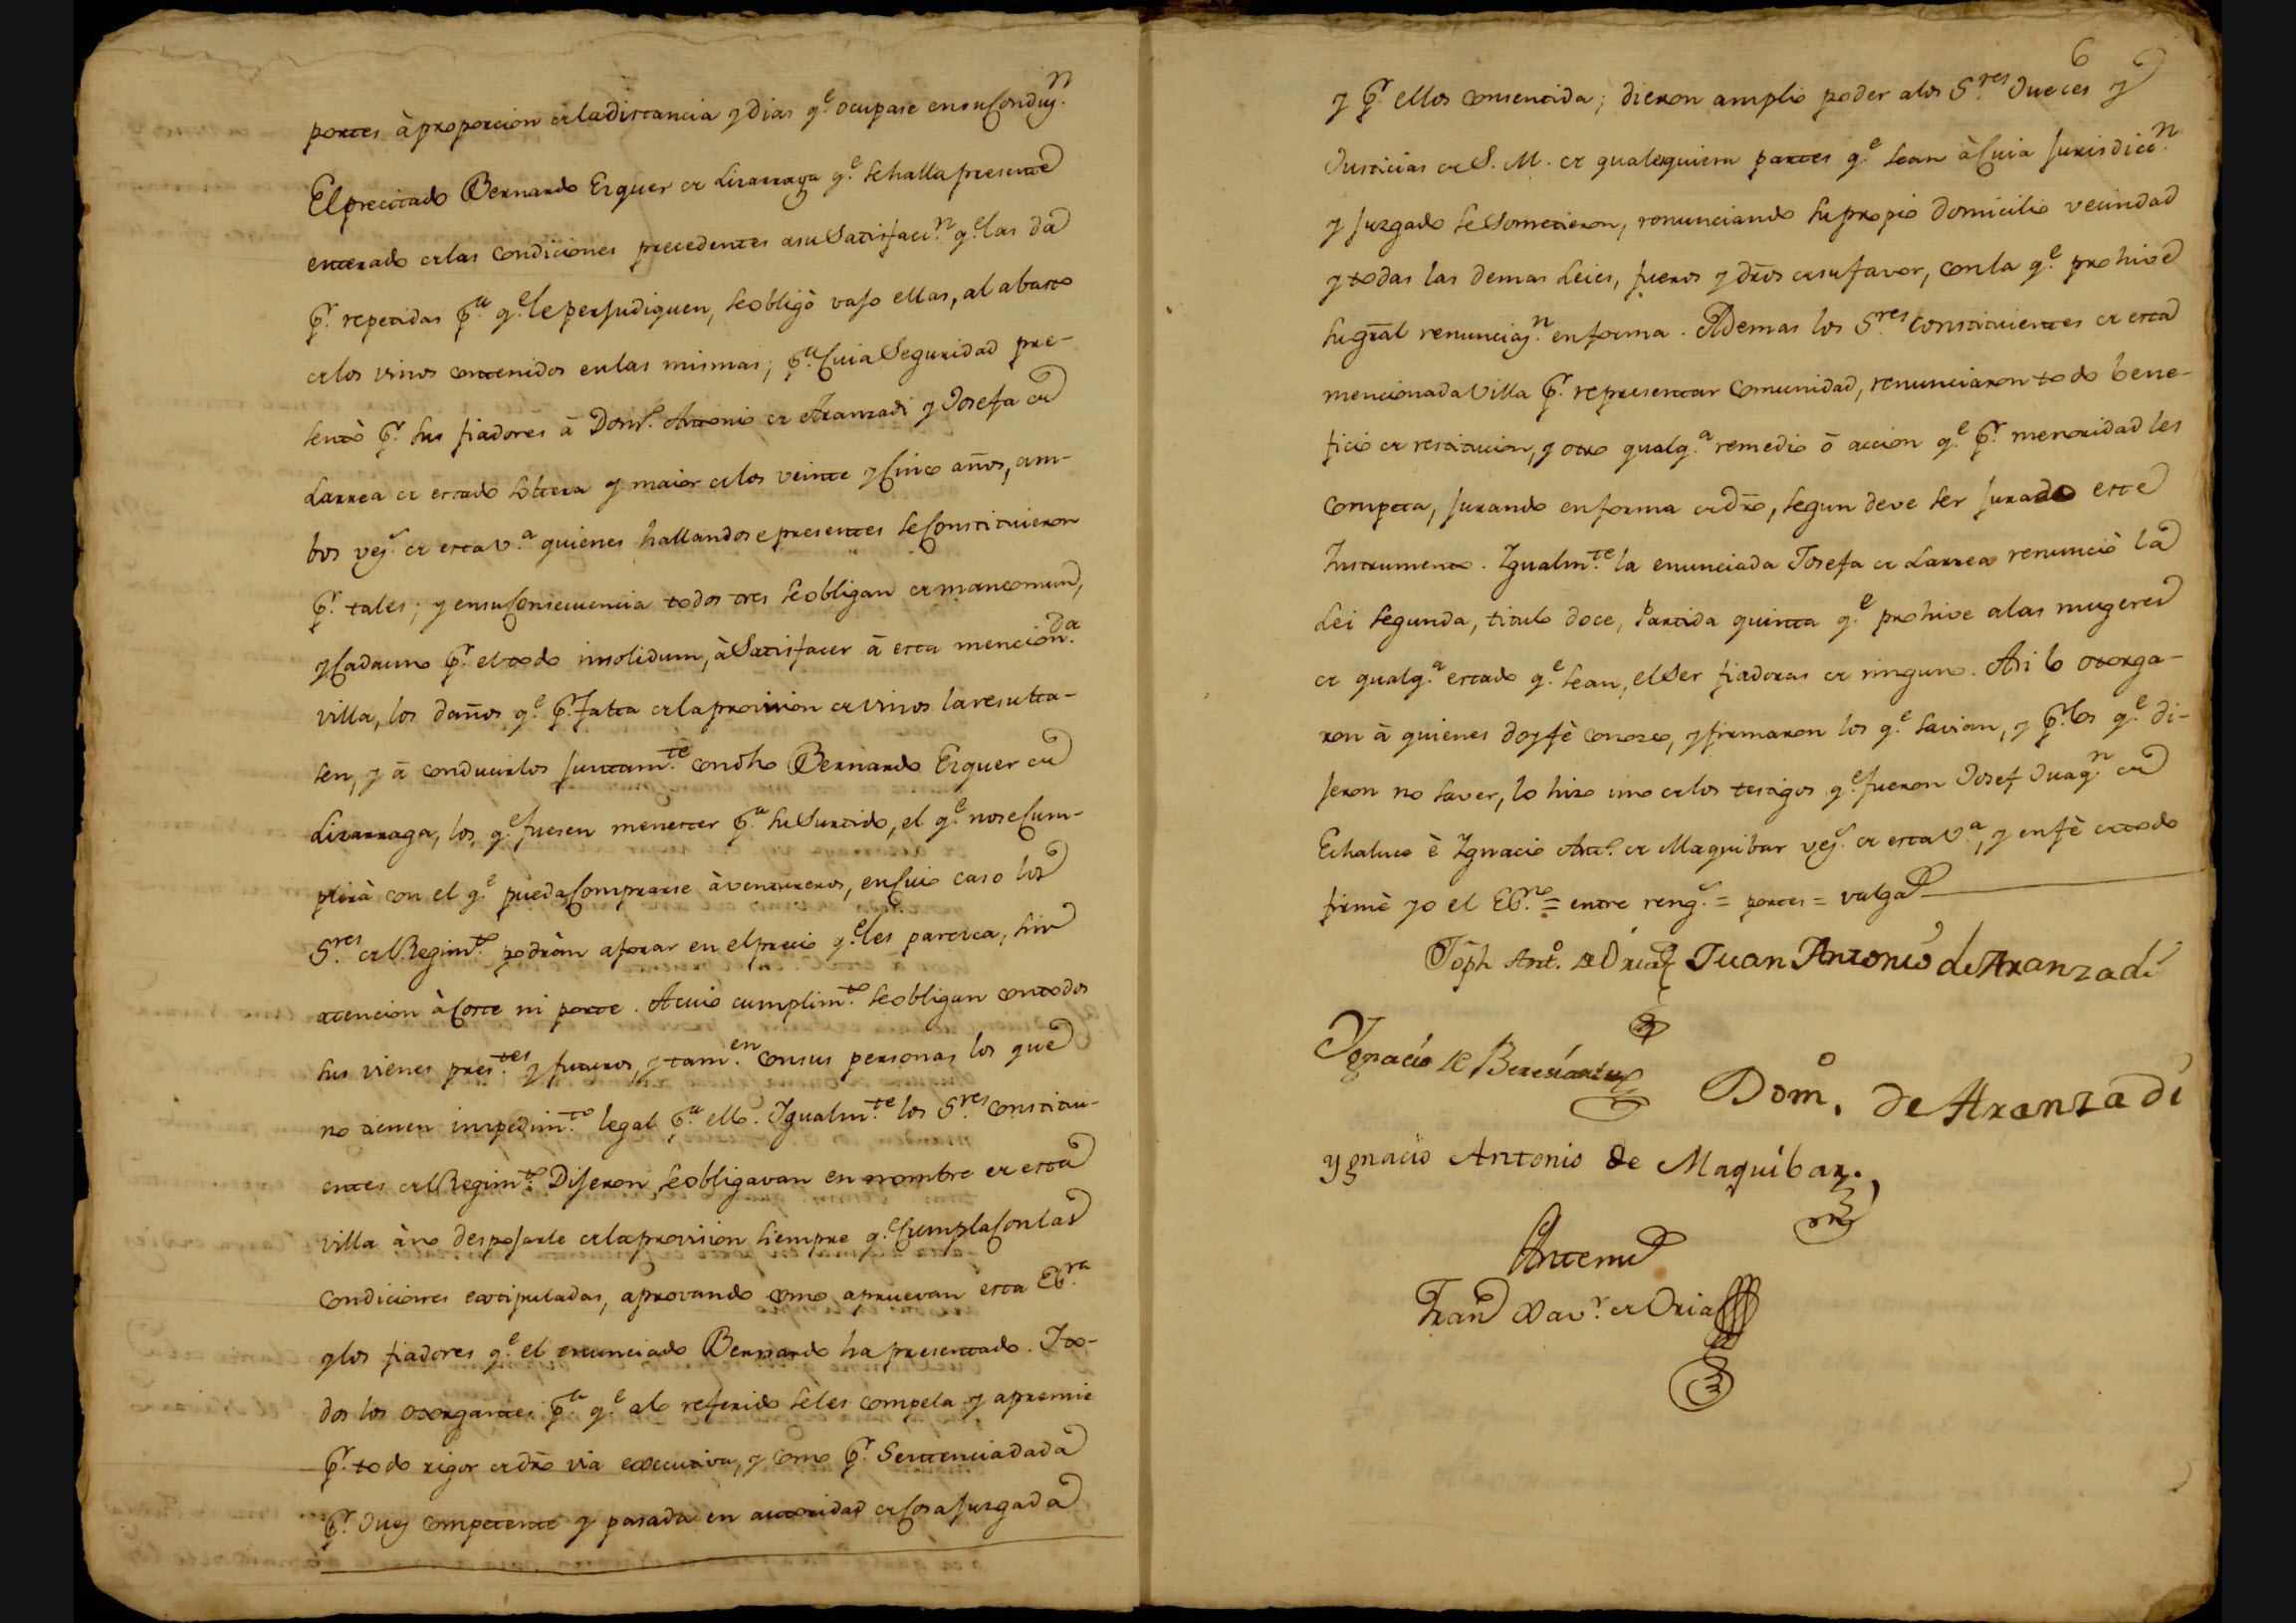 portes à proporcion de la distancia y dias q.e ocupase en su Conduz.n
El precitado Bernardo Ezquer de Lizarraga q.e se halla presente
enterado de las condiciones precedentes a su Satisfacc.n q.e las da
p.r repetidas p.a q.e le perjudiquen, se obligò vajo ellas, al abasto
de los vinos contenidos en las mismas; p.a Cuia Seguridad pre-
sentò p.r sus fiadores à Dom.o Antonio de Aranzadi y Josefa de
Larrea de estado Soltera y maior de los veinte y Cinco años, am-
bos vez.s de esta v.a quienes hallandose presentes se Constituieron
p.r tales; y en su Consecuencia todos tres se obligan de mancomun,
y Cada uno p.r el todo insolidum, à Satisfacer à esta mencion.da
villa, los daños q.e p.r falta de la provision de vinos la resulta-
sen, y à conducirlos juntam.te con dho Bernardo Ezquer de
Lizarraga, los q.e fuesen menester p.a su Surtido, el q.e no se Cum-
plirà con el q.e pueda Comprarse à ventureros, en Cuio caso los
S.res del Regim.to podràn aforar en el precio q.e les parezca, sin
atencion à Coste ni porte. A cuio cumplim.to se obligan con todos
sus vienes pres.tes y futuros, y tam.en con sus personas los que
no tienen impedim.to legal p.a ello. Igualm.te los S.res constitui-
entes del Regim.to Dijeron se obligavan en nombre de esta
villa à no despojarle de la provision siempre q.e Cumpla Con las
condiciones extipuladas, aprovando como apruevan esta Es.ra
y los fiadores q.e el enunciado Bernardo ha presentado. I to-
dos los otorgantes p.a q.e a lo referido se les compela y apremie
p.r todo rigor de dro via executiva, y como p.r Sentencia dada
p.r Juez competente y pasada en autoridad de Cosa juzgada
6
y p.r ellos consentida; dieron amplio poder a los S.res Jueces y
Justicias de S. M. de qualesquiera partes q.e sean à Cuia jurisdicc.n
y juzgado se Sometieron, renunciando su propio domicilio vecindad
y todas las demas Leies, fueros y dros de su favor, con la q.e prohive
su gral renunciaz.n en forma. Ademas los S.res Constituientes de esta
mencionada Villa p.r representar Comunidad, renunciaron todo bene-
ficio de restitucion, y otro qualq.a remedio ò accion q.e p.r menoridad les
competa, jurando en forma de dro, segun deve ser jurado este
Instrumento. Igualm.te la enunciada Josefa de Larrea renunciò la
Lei segunda, titulo doce, Partida quinta q.e prohive a las mugeres
de qualq.a estado q.e sean, el Ser fiadoras de ninguno. Asi lo otorga-
ron à quienes doy fè conozco, y firmaron los q.e savian, y p.r los q.e di-
jeron no saver, lo hizo uno de los testigos q.e fueron Josef Juaq.n de
Echaluce è Ignacio Ant.o de Maquibar vez.s de esta V.a, y en fè de todo
firmè yo el Es.no = entre reng.s = portes = valga
Jõph Ant.o de Oria Juan Antonio de Aranzadi
Ygnacio de Beresiartu
Dom.o de Aranzadi
Ygnacio Antonio de Maquibar.
Antemi
Fran.co Xav.r de Oria